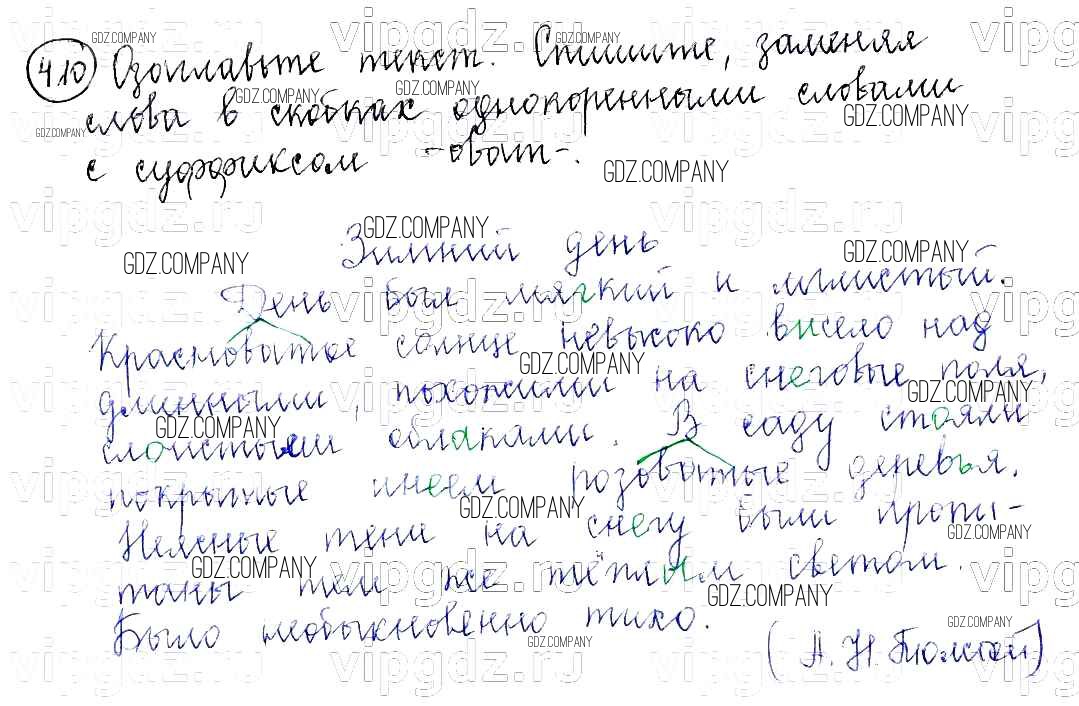 410 Озаглавьте текст. Спишите, заменяя
слова в скобках однокоренными словами
с суффиксом -оват-.
Зимний день
День был мягкий и мглистый.
Красноватое солнце невысоко висело над
длинными, похожими на снеговые поля,
слоистыми облаками. В саду стояли
покрытые инеем розоватые деревья.
Неясные тени на снегу были пропи-
таны тем же тёплым светом.
Было необыкновенно тихо.
(А. Н. Толстой)
GDZ.COMPANY
vipgdz.ru